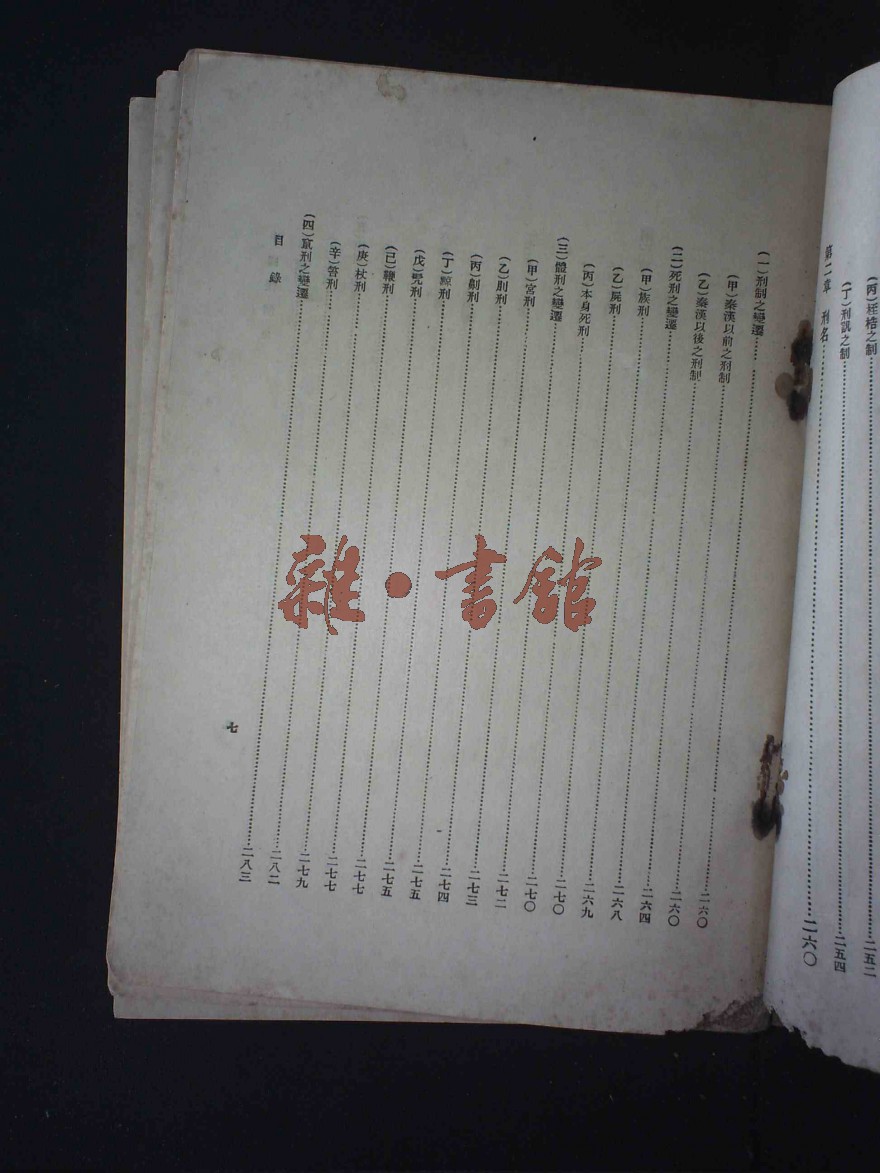 (丙)桎梏之制……二五二
(丁)刑訊之制……二五四
第二章 刑名……二六〇
(一)刑制之變遷……二六〇
(甲)秦漢以前之刑制……二六〇
(乙)秦漢以後之刑制……二六四
(二)死刑之變遷……二六八
(甲)族刑……二六九
(乙)屍刑……二七〇
(丙)本身死刑……二七〇
(三)體刑之變遷……二七二
(甲)宮刑……二七三
(乙)刖刑……二七四
(丙)劓刑……二七五
(丁)黥刑……二七五
(戊)髡刑……二七七
(己)鞭刑……二七七
(庚)杖刑……二七九
(辛)笞刑……二八二
(四)刑之變遷……二八三
目錄
七
雜·書館